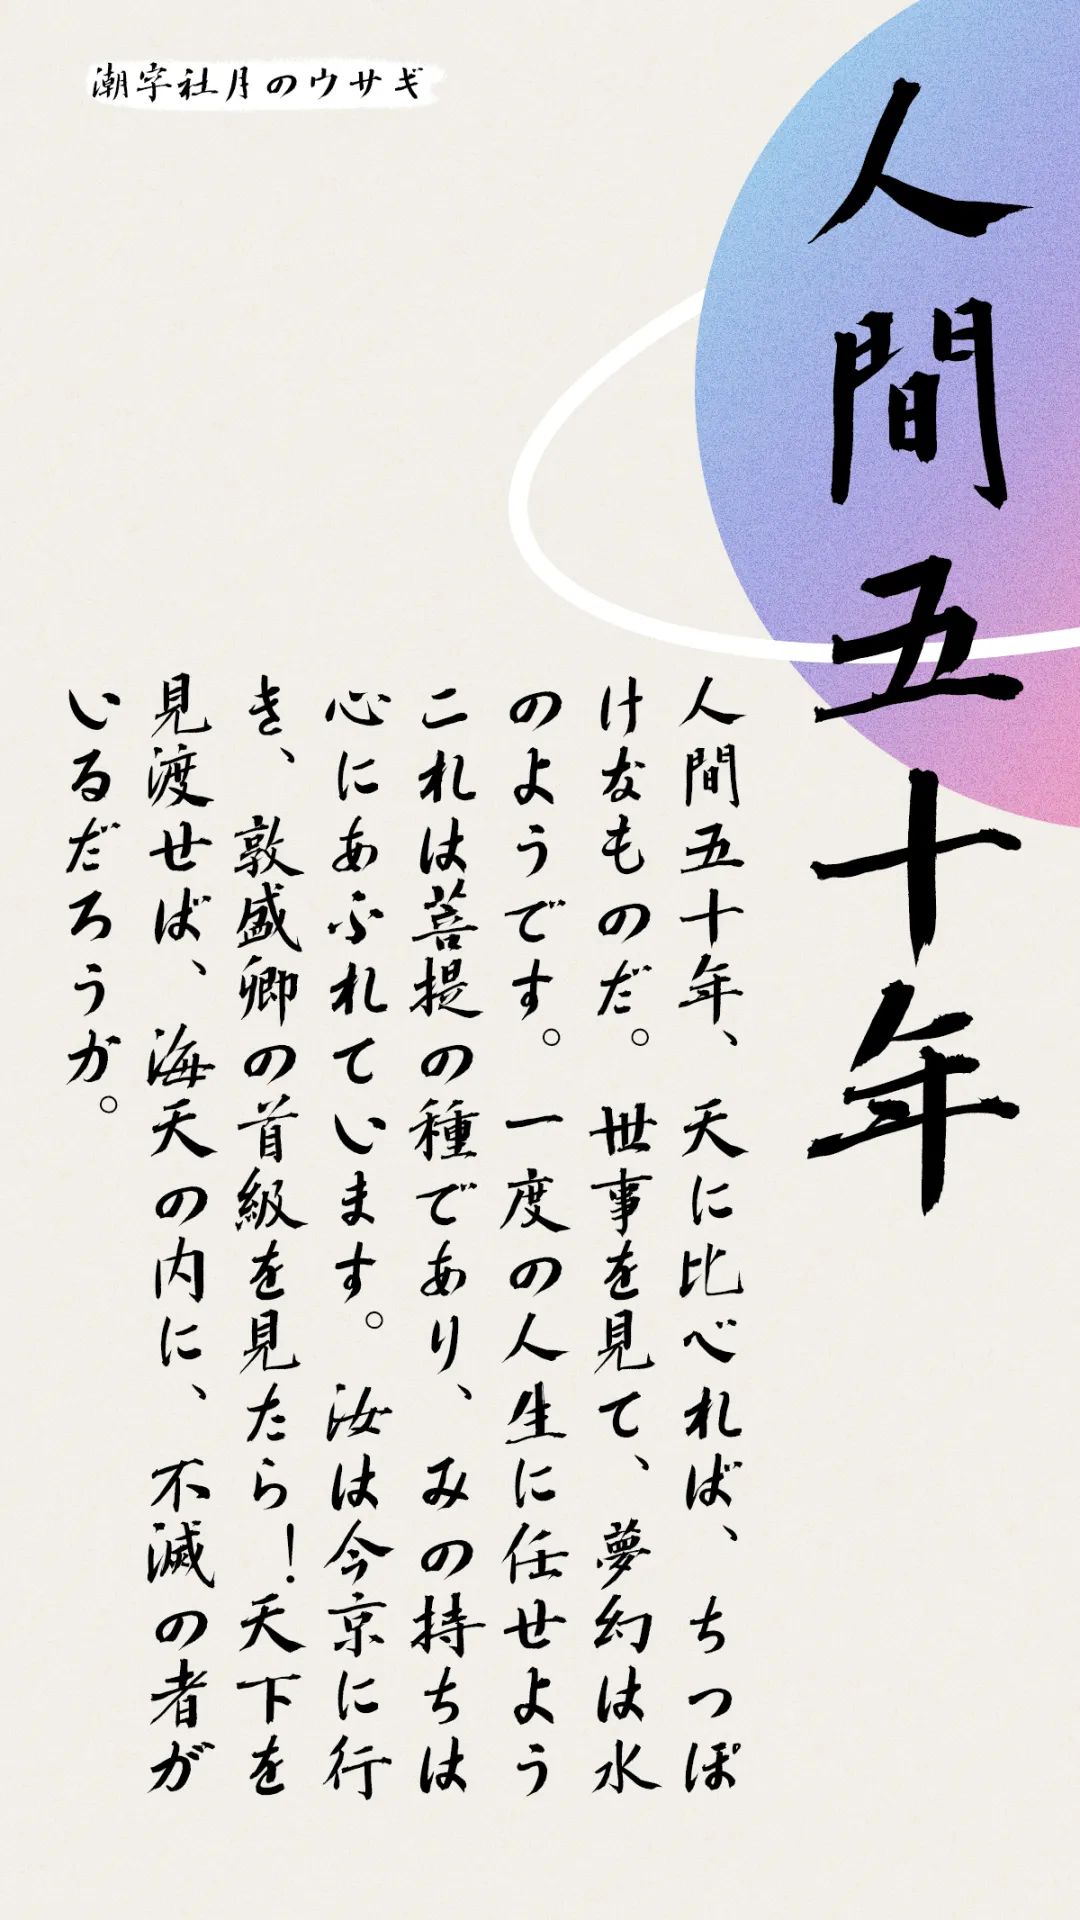 潮字社月のウサギ
人間五十年
人間五十年、天に比べれば、ちつぽ
けなものだ。世事を見て、夢幻は水
のようです。一度の人生に任せよう
これは菩提の種であり、みの持ちは
心にあふれています。汝は今京に行
き、敦盛卿の首級を見たら！天下を
見渡せば、海天の内に、不滅の者が
いるだろうか。